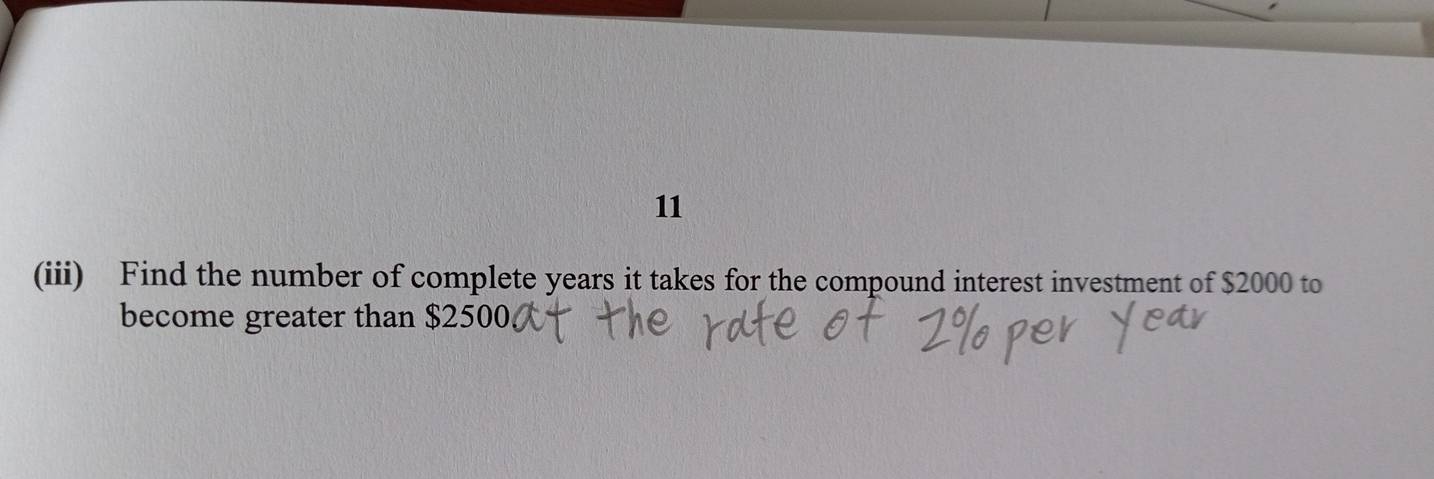 11
(iii) Find the number of complete years it takes for the compound interest investment of $2000 to
become greater than $2500. at the rate of 2% per year